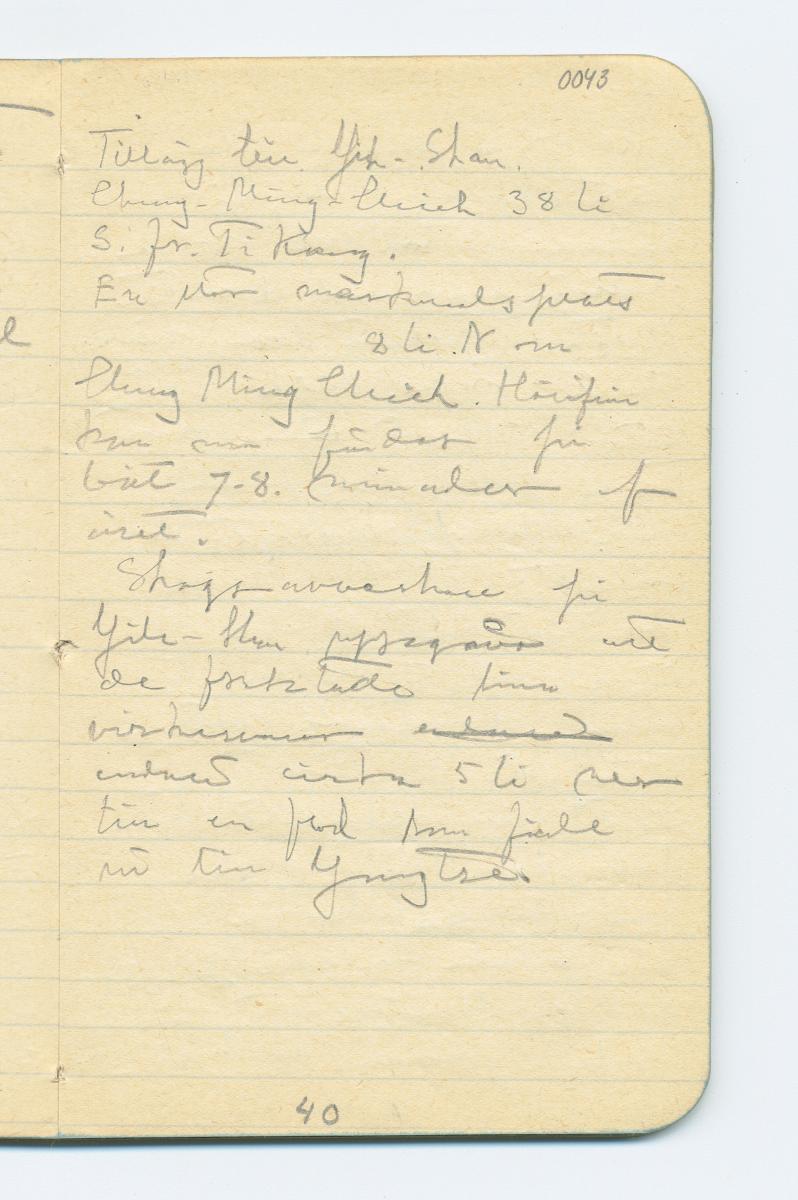 0043
Tillägg till Yih-Shan.
Chung-Ming-Chieh 38 li
S. fr. Ti Kang.
En stor marknadsplats
8 li N om
Chung Ming Chieh. Härifrån
kan man färdas på
båt 7-8 månader af
året.
Skogsarvastare på
Yih-Shan uppgåvo att
de forslade sina
virkesvaror
endast cirka 5 li ner
till en flod som förde
ut till Yangtse.
40